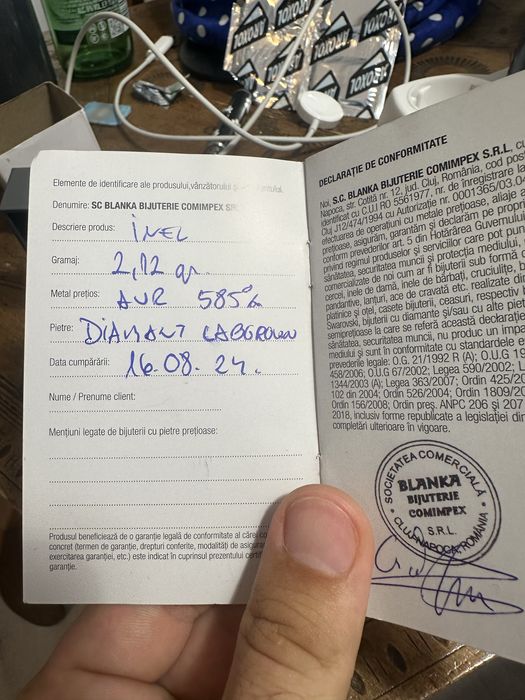 AROXOL
AROXOL
AROXOL
Elemente de identificare ale produsului,vânzătorului
Denumire: SC BLANKA BIJUTERIE COMIMPEX SR
Descriere produs: INEL
Gramaj: 2,12 gr
Metal prețios: AUR 585%
Pietre: DIAMANT LABGROWN
Data cumpărării: 16.08.24.
Nume / Prenume client:
Mențiuni legate de bijuterii cu pietre prețioase:
Produsul beneficiază de o garanție legală de conformitate al cărei
concret (termen de garanție, drepturi conferite, modalități de
exercitarea garanției, etc.) este indicat în cuprinsul prezentului
garanție.
DECLARAȚIE DE CONFORMITATE
Noi, S.C. BLANKA BIJUTERIE COMIMPEX S.R.L. cu
Napoca, str. Cotită nr. 12, jud. Cluj, România, cod
identificat cu C.U.I RO 5561977, nr. de înregistrare la
Cluj J12/474/1994 cu Autorizație nr. 0001365/03.04
efectuarea de operațiuni cu metale prețioase, aliaje
prețioase, asigurăm, garantăm și declarăm pe
conform prevederilor art. 5 din Hotărârea Guvernului
privind regimul produselor și serviciilor care pot pune
sănătatea, securitatea muncii și protecția mediului,
comercializate de noi cum ar fi bijuterii sub formă
cercei, inele de damă, inele de bărbați, cruciulițe,
pandantive, lanțuri, ace de cravată etc. realizate din
platinice și oțel, casete bijuterii, ceasuri, respectiv
Swarovski, bijuterii cu diamante și/sau cu alte
semiprețioase la care se referă această declarație
sănătatea, securitatea muncii, nu produc un
mediului și sunt în conformitate cu standardele
prevederile legale: O.G. 21/1992 R (A); O.U.G
458/2006; O.U.G 67/2002; Legea 590/2002; L
1344/2003 (A); Legea 363/2007; Ordin 425/20
102 din 2004; Ordin 526/2004; Ordin 1809/20
Ordin 156/2008; Ordin preș. ANPC 206 și 207
2018, inclusiv forme republicate a legislației din
completări ulterioare în vigoare.
SOCIETATEA COMERCIALĂ
BLANKA
BIJUTERIE
COMIMPEX
S.R.L.
CLUJ-NAPOCA, ROMÂNIA